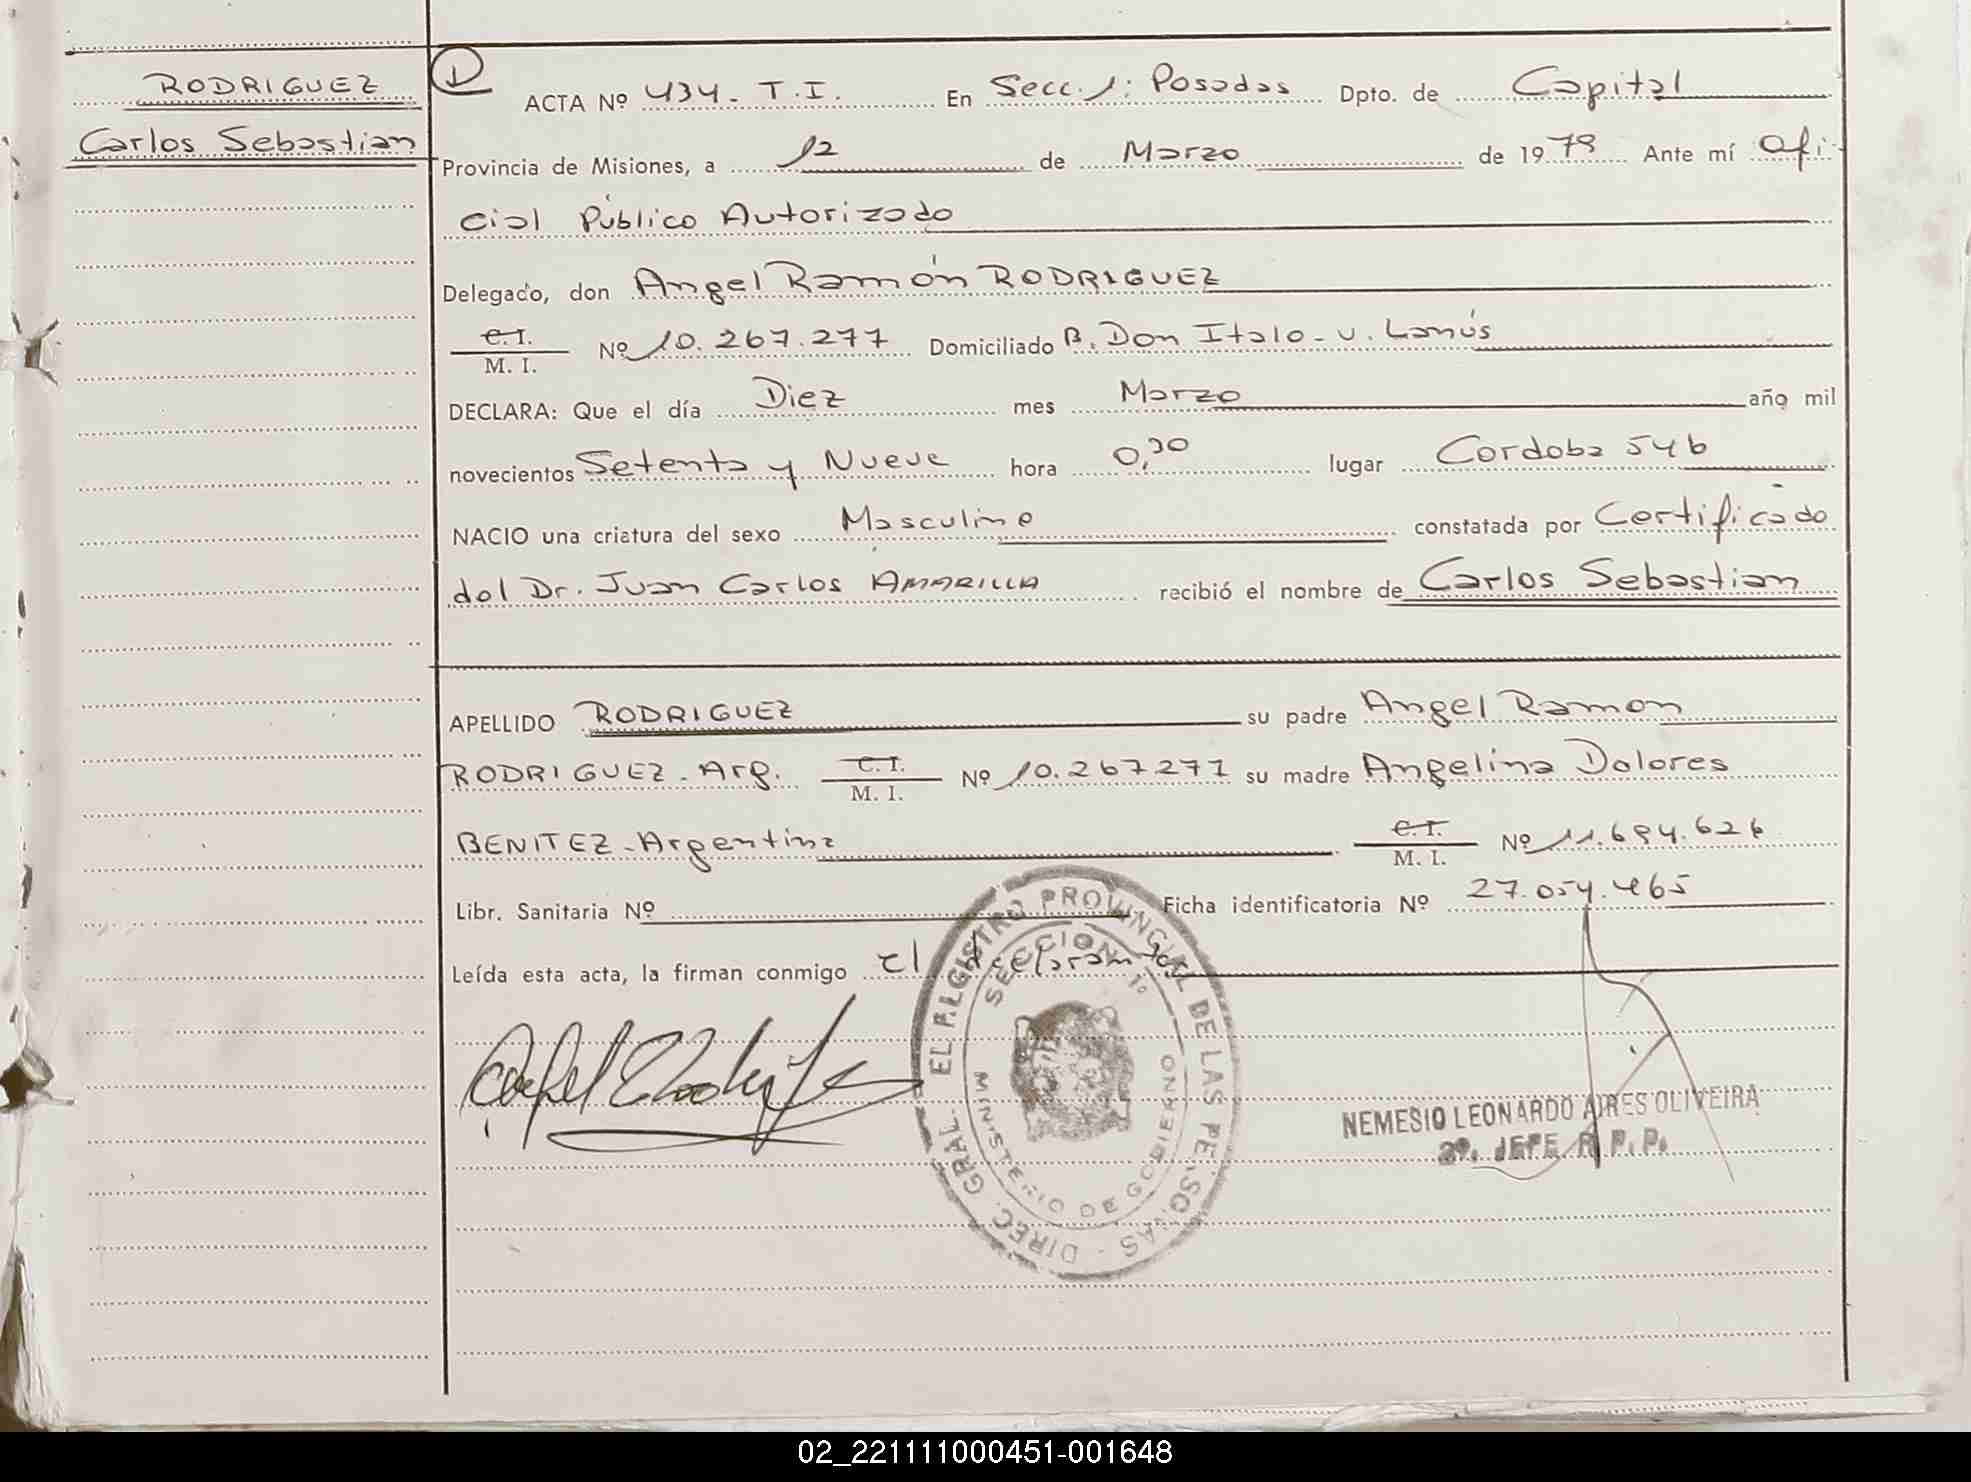 RODRIGUEZ
Carlos Sebastian
D
ACTA Nº 434. T.I. En Secc. 1: Posadas Dpto. de Capital
Provincia de Misiones, a 12 de Marzo de 1979 Ante mí Ofi-
cial Público Autorizado
Delegado, don Angel Ramón RODRIGUEZ
C.I.
M. I. Nº 10.267.277 Domiciliado B. Don Italo - V. Lanús
DECLARA: Que el día Diez mes Marzo año mil
novecientos Setenta y Nueve hora 0,30 lugar Cordoba 546
NACIO una criatura del sexo Masculino constatada por Certificado
del Dr. Juan Carlos AMARILLA recibió el nombre de Carlos Sebastian
APELLIDO RODRIGUEZ su padre Angel Ramon
RODRIGUEZ - Arg. C.I. M. I. Nº 10.267277 su madre Angelina Dolores
BENITEZ - Argentina C.I. M. I. Nº 11.694.626
Libr. Sanitaria Nº Ficha identificatoria Nº 27.054.465
Leída esta acta, la firman conmigo el declarante
DIREC. GRAL. EL REGISTRO PROVINCIAL DE LAS PERSONAS
SECCION 1º
MINISTERIO DE GOBIERNO
NEMESIO LEONARDO AIRES OLIVEIRA
2º. JEFE R. P. P.
02_221111000451-001648